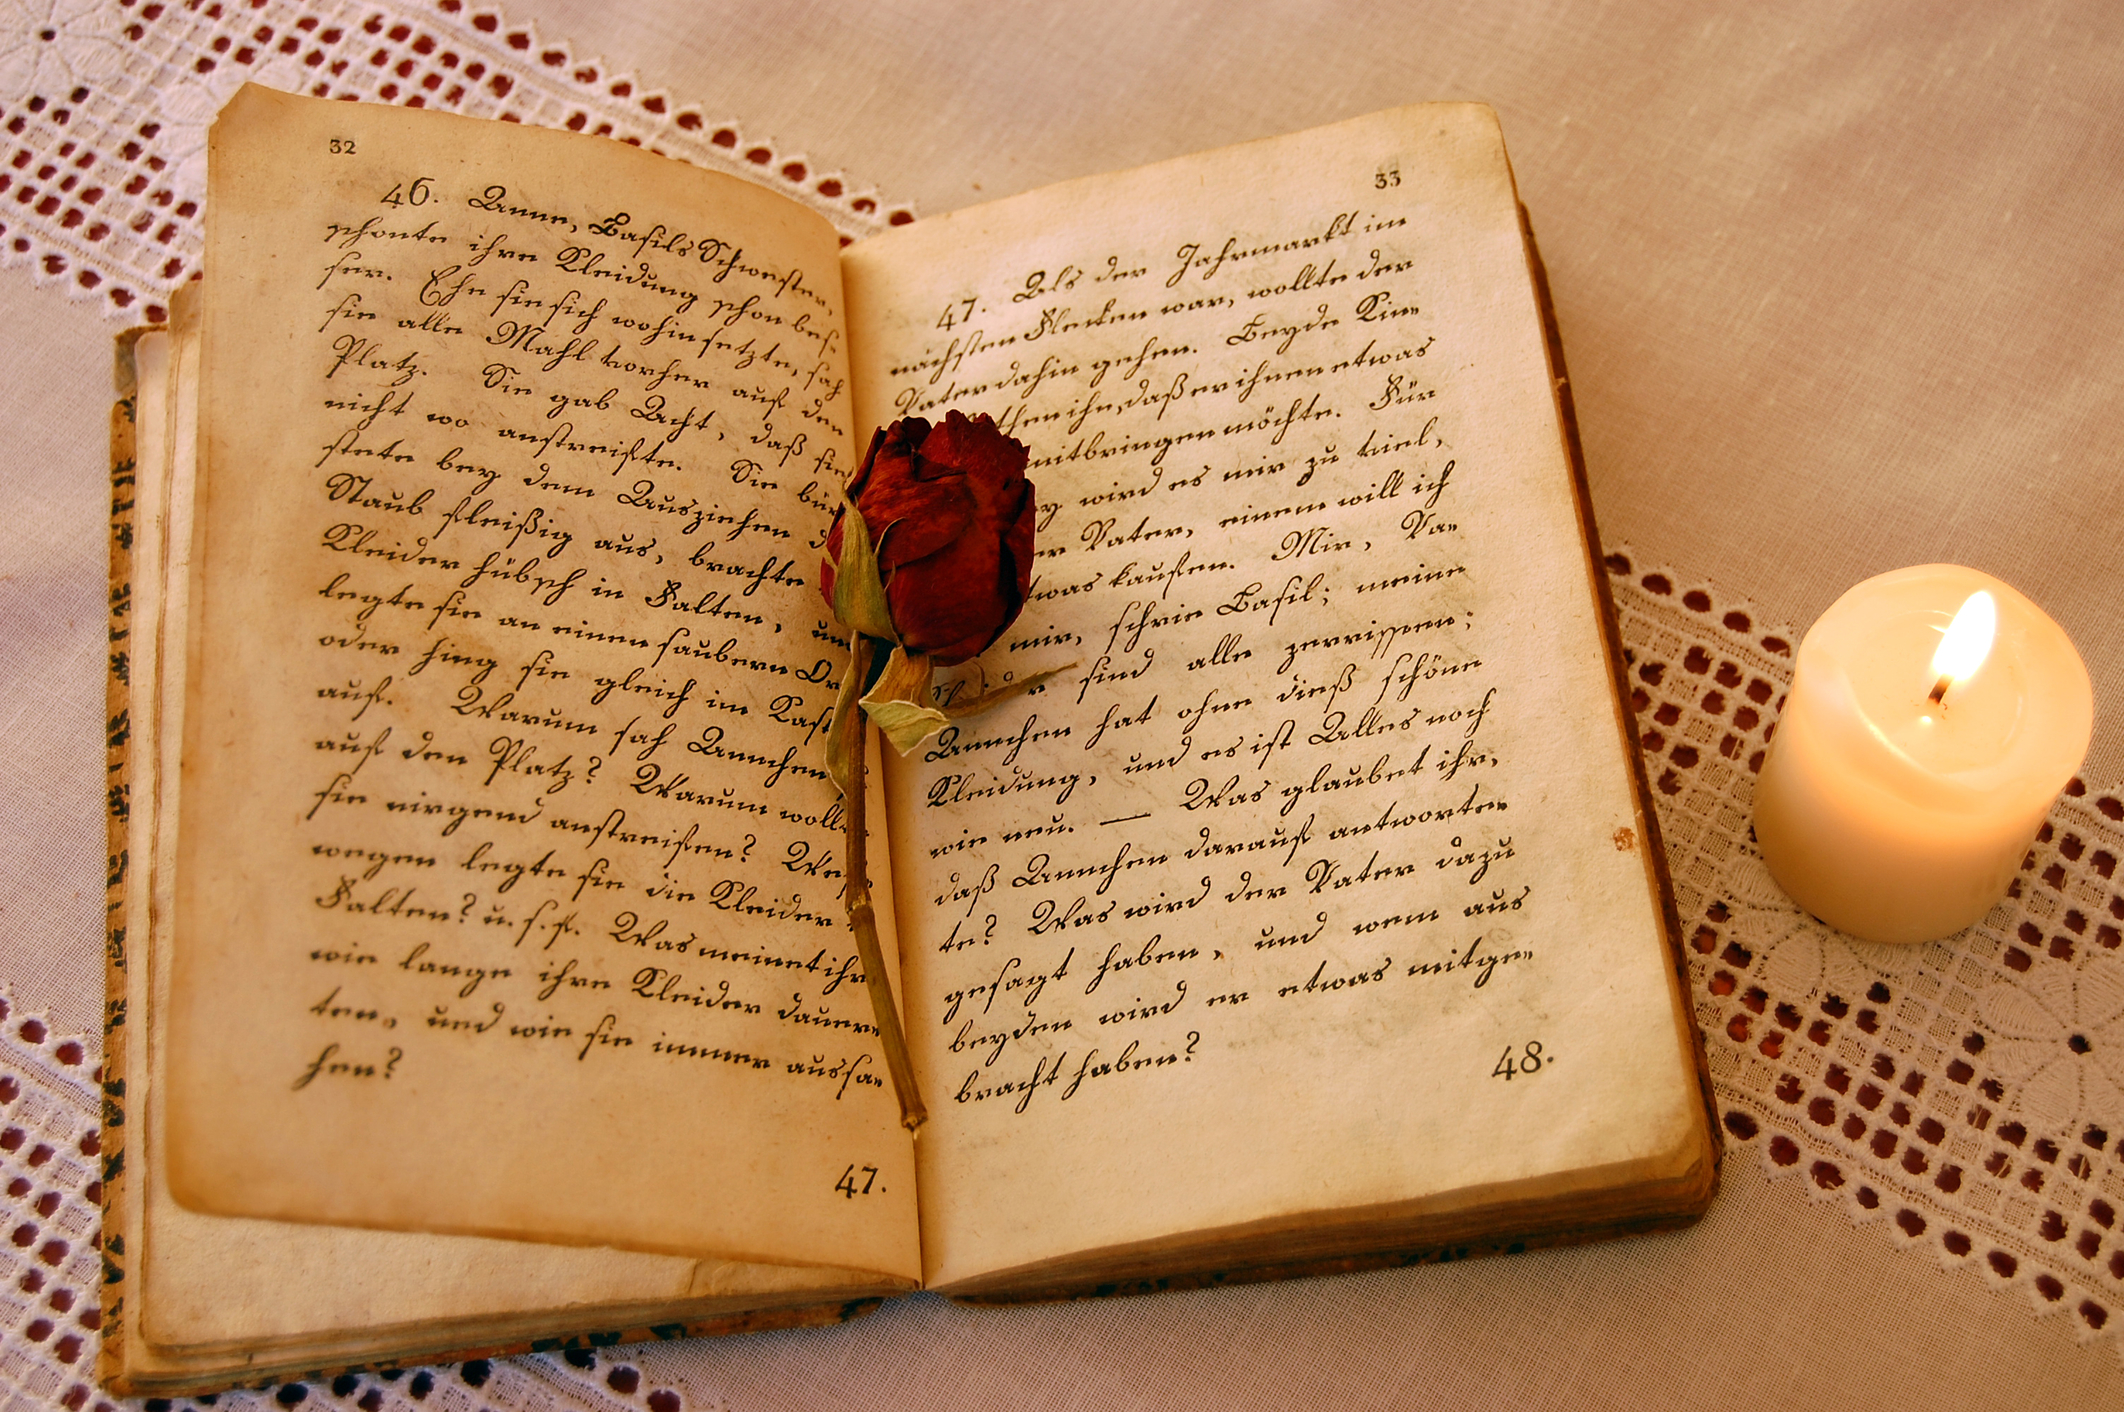 32
46. Anne, Basils Schwester,
schonte ihre Kleidung schon bes-
ser. Ehe sie sich wohin setzte, sah
sie alle Mahl vorher auf den
Platz. Sie gab Acht, daß sie
nicht wo anstreifte. Sie bür
stete bey dem Ausziehen d
Staub fleißig aus, brachte
Kleider hübsch in Falten, un
legte sie an einen saubern Or
oder hing sie gleich im Kast
auf. Warum sah Annchen
auf den Platz? Warum wollt
sie nirgend anstreifen? Weß
wegen legte sie die Kleider
Falten? u. s. f. Was meinet ihr
wie lange ihre Kleider dauer-
ten, und wie sie immer aussa-
hen?
47.
33
47. Als der Jahrmarkt im
nächsten Flecken war, wollte der
Vater dahin gehen. Beyde Kin-
then ihn, daß er ihnen etwas
mitbringen möchte. Für
y wird es mir zu viel,
er Vater, einem will ich
twas kaufen. Mir, Va-
mir, schrie Basil; meine
sind alle zerrissen;
Annchen hat ohne dieß schöne
Kleidung, und es ist Alles noch
wie neu. — Was glaubet ihr,
daß Annchen darauf antworte-
te? Was wird der Vater dazu
gesagt haben, und wem aus
beyden wird er etwas mitge-
bracht haben?
48.